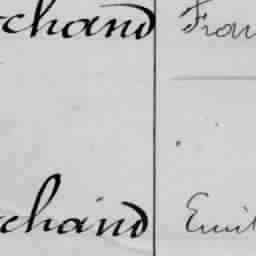 chand Fran
chand Emil